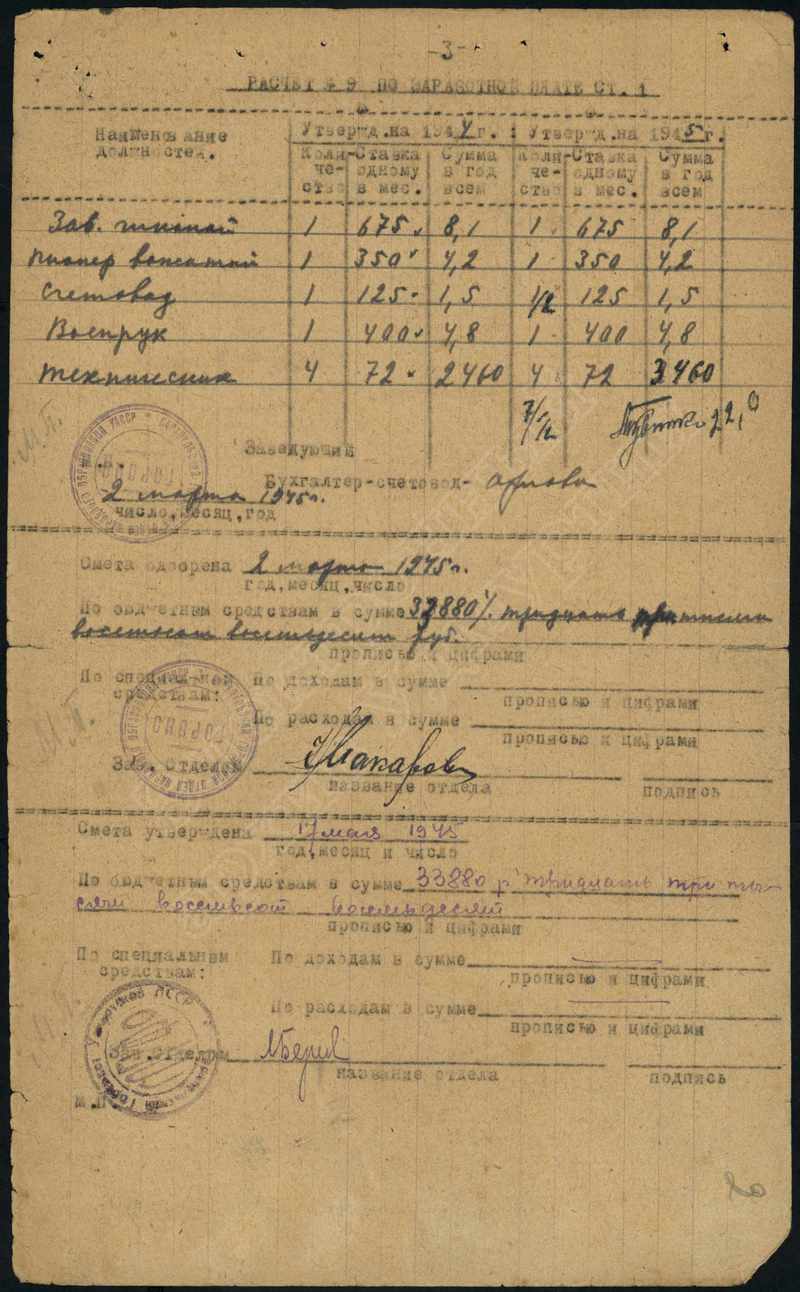 -3-
РАСЧЕТ № 9 ПО ЗАРАБОТНОЙ ПЛАТЕ СТ. 1
Наименование должностей. Утвержд. на 1944 г. : Утвержд. на 1945 г.
Коли- Ставка Сумма Коли- Ставка Сумма
че- одному в год че- одному в год
ство в мес. всем ство в мес. всем
Зав. школой 1 675 8,1 1 675 8,1
Пионер вожатый 1 350 4,2 1 350 4,2
Счетовод 1 125 1,5 1/2 125 1,5
Воспрук 1 400 4,8 1 400 4,8
Технических 4 72 2460 4 72 3460
7 1/2 22,0
М.П.
Заведующий
Бухгалтер-счетовод-
2 марта 1945 г.
число, месяц, год
Смета одобрена 2 марта 1945 г.
год, месяц, число
По бюджетным средствам в сумме 33880 р. тридцать три тысячи
восемьсот восемьдесят руб.
прописью и цифрами
По специальным По доходам в сумме
средствам: прописью и цифрами
М.П.
По расходам в сумме
прописью и цифрами
ГОРОНО
Зав. отделом Макаров
название отдела подпись
Смета утверждена 17 мая 1945
год, месяц и число
По бюджетным средствам в сумме 33880 р тридцать три ты-
сячи восемьсот восемьдесят
прописью и цифрами
По специальным По доходам в сумме
средствам: прописью и цифрами
По расходам в сумме
прописью и цифрами
Зав. отделом
название отдела подпись
М.П.